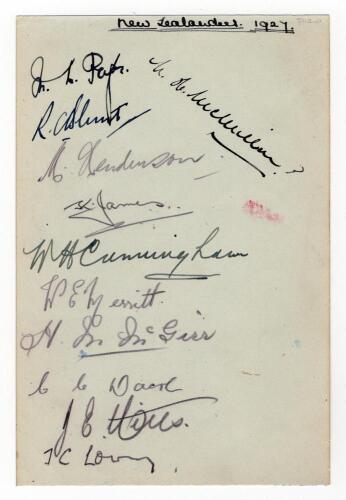 New Zealanders. 1927
M. L. Page.
N. H. McMillan.
R. C. Blunt
M. Henderson
K. James.
W H Cunningham
W E Merritt.
H. M. McGirr
C C Dacre
J. E. Mills.
T C Lowry